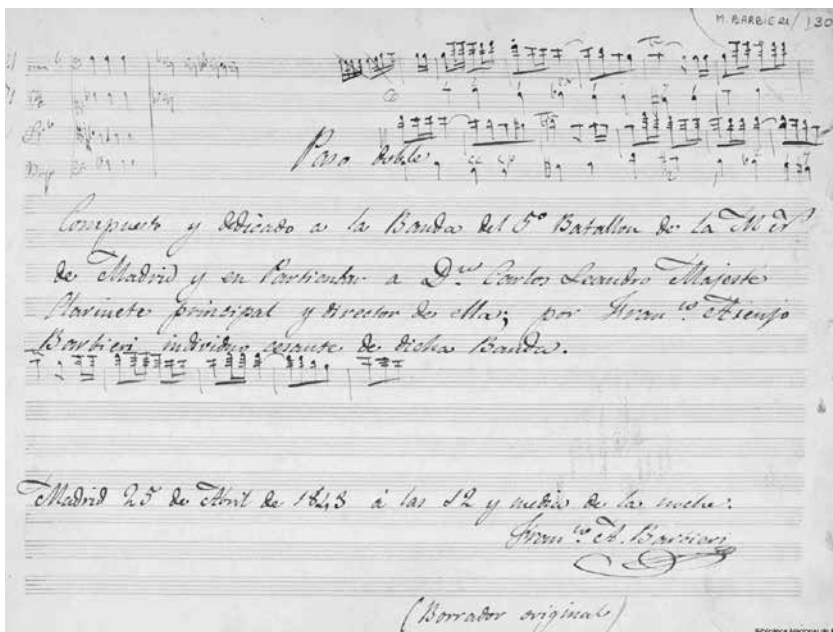 M. BARBIERI / 130
Paso doble
Compuesto y dedicado a la Banda del 5º Batallon de la M Nˡ
de Madrid y en Particular a Dⁿ Carlos Leandro Majeste
Clarinete principal y director de ella; por Franᶜᵒ Asenjo
Barbieri individuo cesante de dicha Banda.
Madrid 25 de Abril de 1843 á las 12 y media de la noche.
Franᶜᵒ A. Barbieri
(Borrador original)
Biblioteca Nacional de E